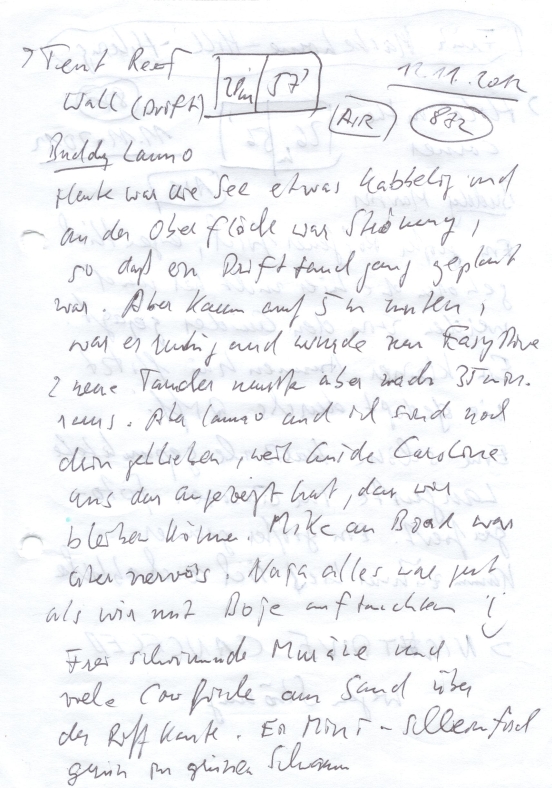 > Tent Reef
Wall (Drift) 28m 57' 12.11.2012
AIR 872
Buddy Lanno
Heute war die See etwas kabbelig und
an der Oberfläche war Strömung,
so daß ein Drifttauchgang geplant
war. Aber kaum auf 5 m unten,
war es ruhig und wurde zum Easy Dive
2 neue Taucher mußte aber nach 35 min.
raus. Aber Lanno und ich sind noch
drin geblieben, weil Guide Caroline
uns das angezeigt hat, das wir
bleiben können. Mike an Board war
aber nervös. Naja alles war gut
als wir mit Boje auftauchten
Frei schwimmende Muräne und
viele am Sand über
der Riff Kante. Ein Mini -
grün im grünen Schwamm